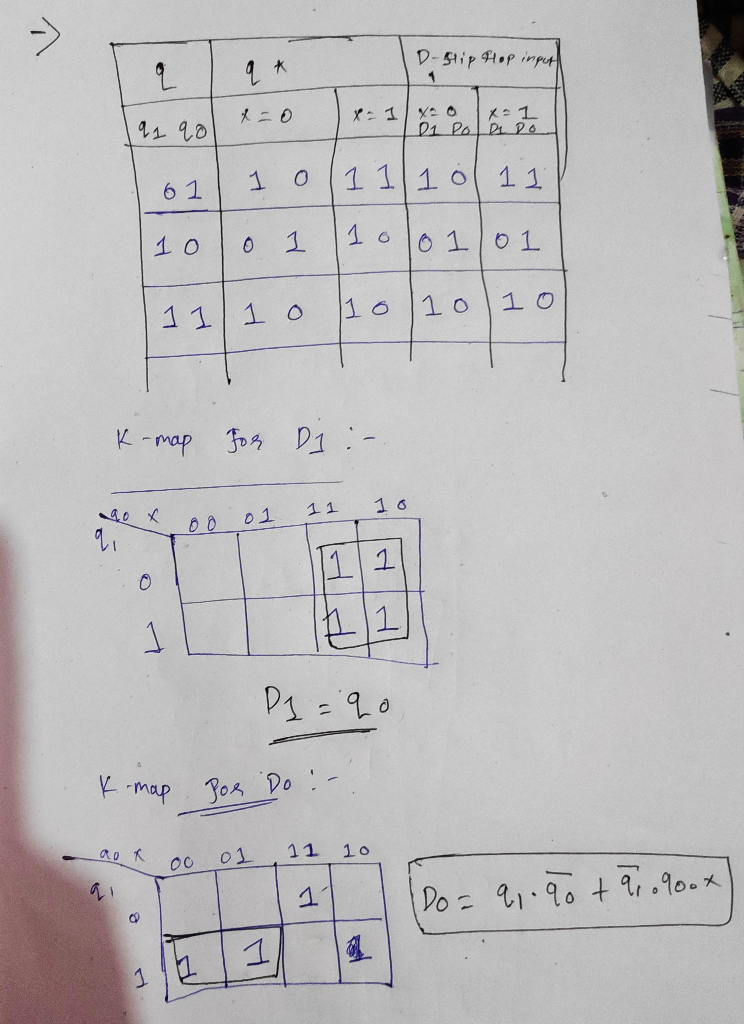 →
q q* D-flip flop input
q1 q0 x=0 x=1 x=0 x=1
D1 D0 D1 D0
01 1 0 1 1 1 0 1 1
1 0 0 1 1 0 0 1 0 1
1 1 1 0 1 0 1 0 1 0
K-map for D1 :-
q0 x 00 01 11 10
q1
0 1 1
1 1 1
D1 = q0
K-map for D0 :-
q0 x 00 01 11 10
q1
0 1
1 1 1
D0 = q1·q̅0 + q̅1·q0·x